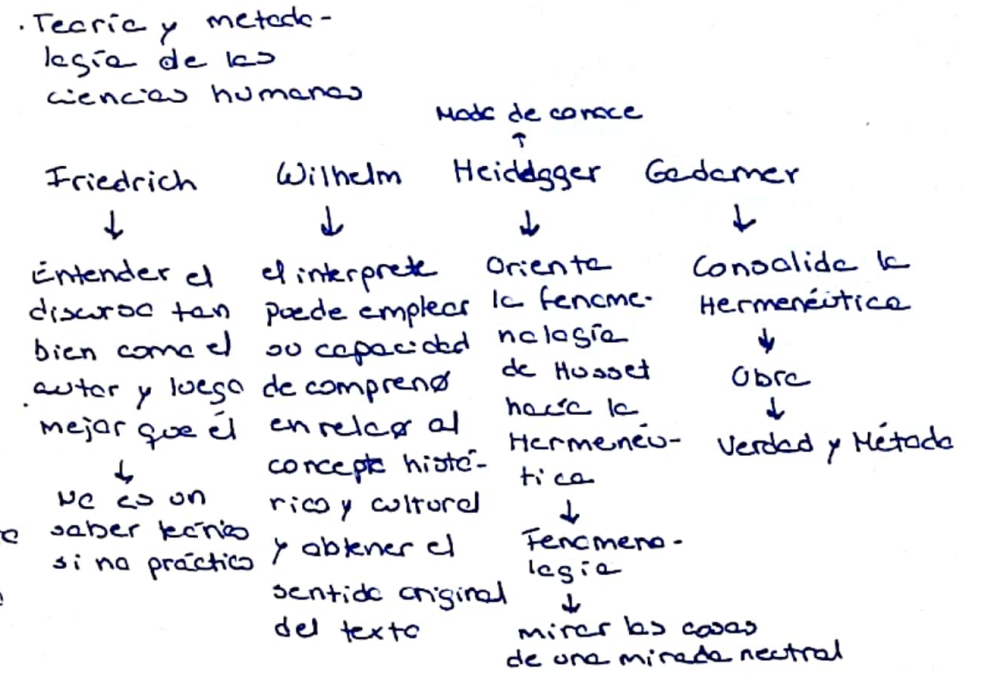 . Teoría y metodo-
logía de las
ciencias humanas
Modo de conoce
↑
Friedrich
↓
Entender el
discurso tan
bien como el
autor y luego
mejor que él
↓
No es un
saber técnico
si no práctico
Wilhelm
↓
el interprete
puede emplear
su capacidad
de comprenø
en relcø al
concepto histó-
rico y cultural
y obtener el
sentido original
del texto
Heideggger
↓
Orienta
la fenome-
nología
de Husset
hacía la
Hermenéu-
tica
↓
Fenomeno-
logía
↓
mirar las cosas
de una mirada neutral
Gadamer
↓
Consolida la
Hermenéutica
↓
Obra
↓
Verdad y Método